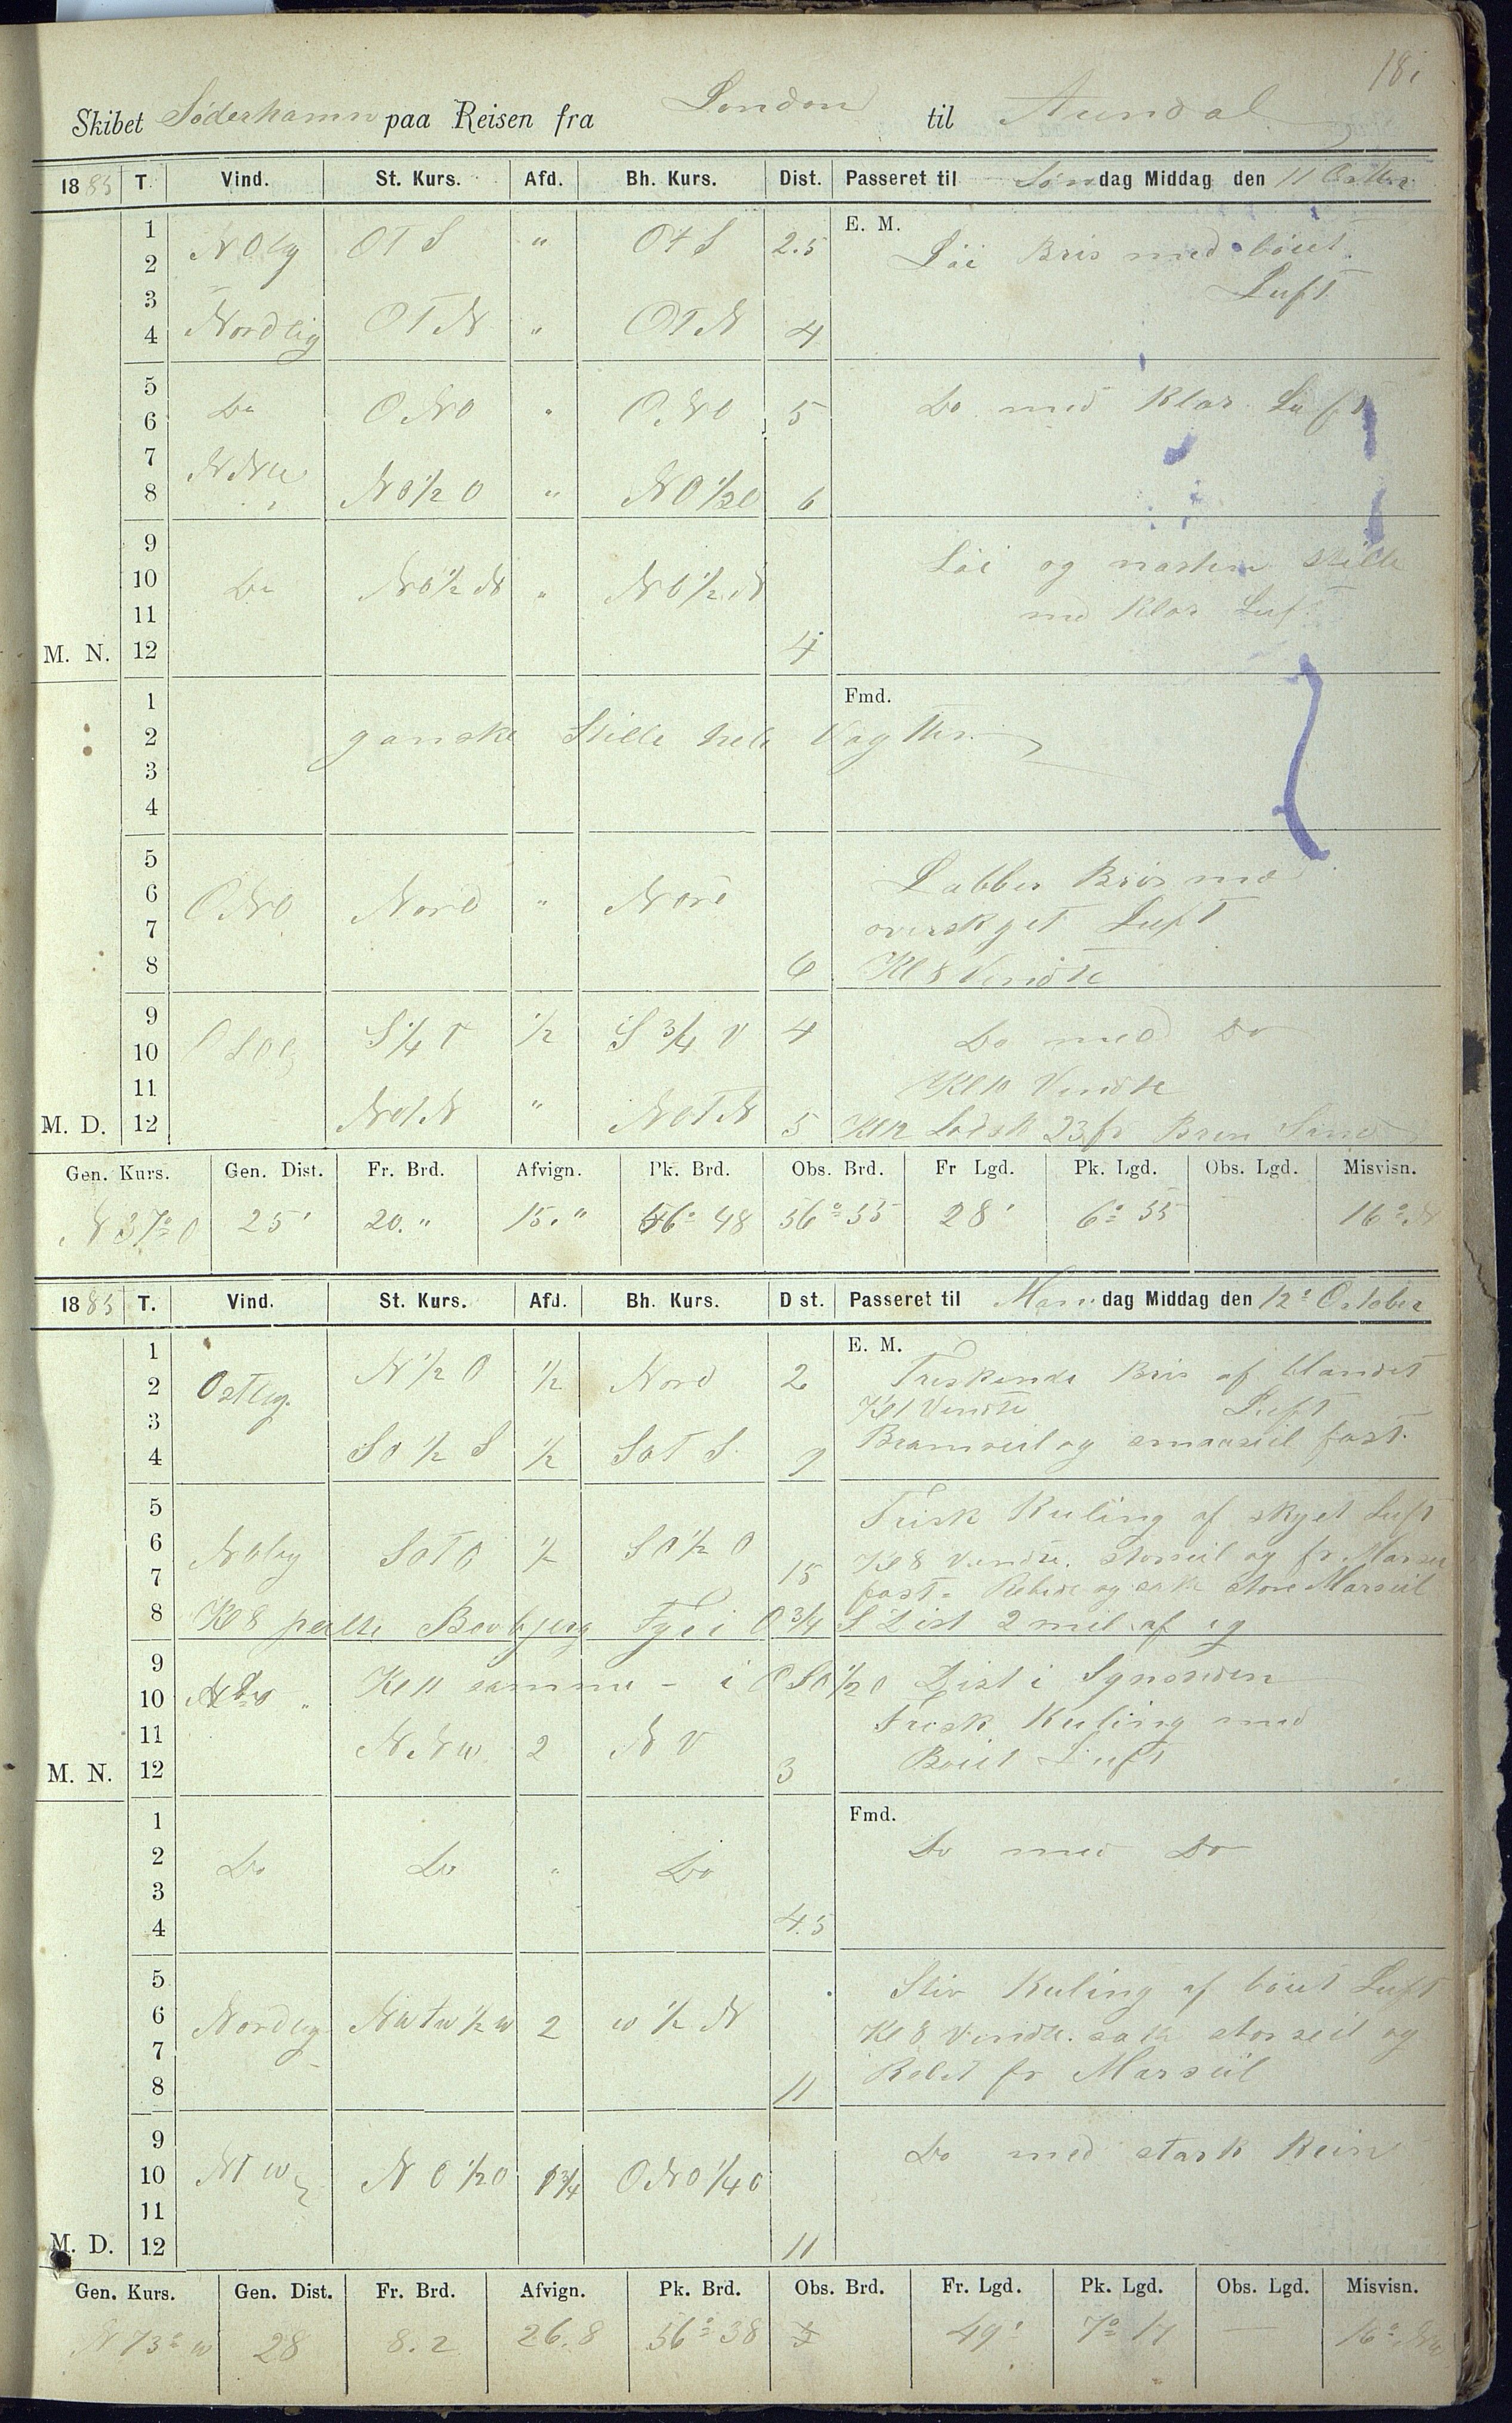 Skibet Söderhamn paa Reisen fra London til Arendal
1885 T. Vind. St. Kurs. Afd. Bh. Kurs. Dist. Passeret til Søndag Middag den 11 Octbr
1 E. M.
2 NOlig OTS " OTS 2.5 Löi Bris med böiet
3 Luft
4 Nordlig OTN " OTN 4
5
6 Do ONO " ONO 5 Do med Klar Luft
7 NNW
8 NO 1/2 O " NO 1/2 O 6
9 Löi og næsten stille
10 Do NO 1/2 N " NO 1/2 N
11 med Klar Luft
M. N. 12 4
1 Fmd.
2 ganske Stille hele Vagten
3
4
5 Labber Bris med
6 ONO Nord " Nord
7 overskyet Luft
8 6 Kl 8 Vendte
9 S 1/4 V 1/2 S 3/4 V 4
10 Do med Do
11 Kl 10 Vendte
M. D. 12 NOTN " NOTN 5 Kl 12 Lodsk 23 fv Brun Sand
Gen. Kurs. Gen. Dist. Fr. Brd. Afvign. Pk. Brd. Obs. Brd. Fr Lgd. Pk. Lgd. Obs. Lgd. Misvisn.
N 37° O 25' 20." 15." 56° 48 56° 55 28' 6° 55 16°
1885 T. Vind. St. Kurs. Afd. Bh. Kurs. Dist. Passeret til Mandag Middag den 12° October
1 E. M.
2 Ostlig. N 1/2 O 1/2 Nord 2 Friskende Bris af blandet
3 Kl 1 Vendte Luft
4 SO 1/2 S 1/2 SOTS 7 Bramseil og smaaseil fast.
5 Frisk Kuling af skyet Luft
6 NOlig SOTO 1/2 SO 1/2 O
7 15 Kl 8 Vendte. Storseil og fr Marseil
fast. Rebede og satte store Marseil
8 Kl 8 peilte Bovbjerg Fyr i O 3/4 S Dist 2 mil af
9
10 Kl 11 samme - i OSO 1/2 O Dist i Synsranden
11 Frisk Kuling med
M. N. 12 NNW 2 NV 3 Böiet Luft
1 Fmd.
2 Do Do " Do Do med Do
3
4 4.5
5 Stiv Kuling af böiet Luft
6 Nordlig NWTW 1/2 W 2 W 1/2 N
7 Kl 8 Vendte. satte storseil og
8 11 Rebet fr Marseil
9
10 NTW NO 1/2 O 1 3/4 ONO 1/4 O Do med stærk Rein
11
M. D. 12 11
Gen. Kurs. Gen. Dist. Fr. Brd. Afvign. Pk. Brd. Obs. Brd. Fr. Lgd. Pk. Lgd. Obs. Lgd. Misvisn.
N 73° W 28 8.2 26.8 56° 38 49' 7° 17 — 16°